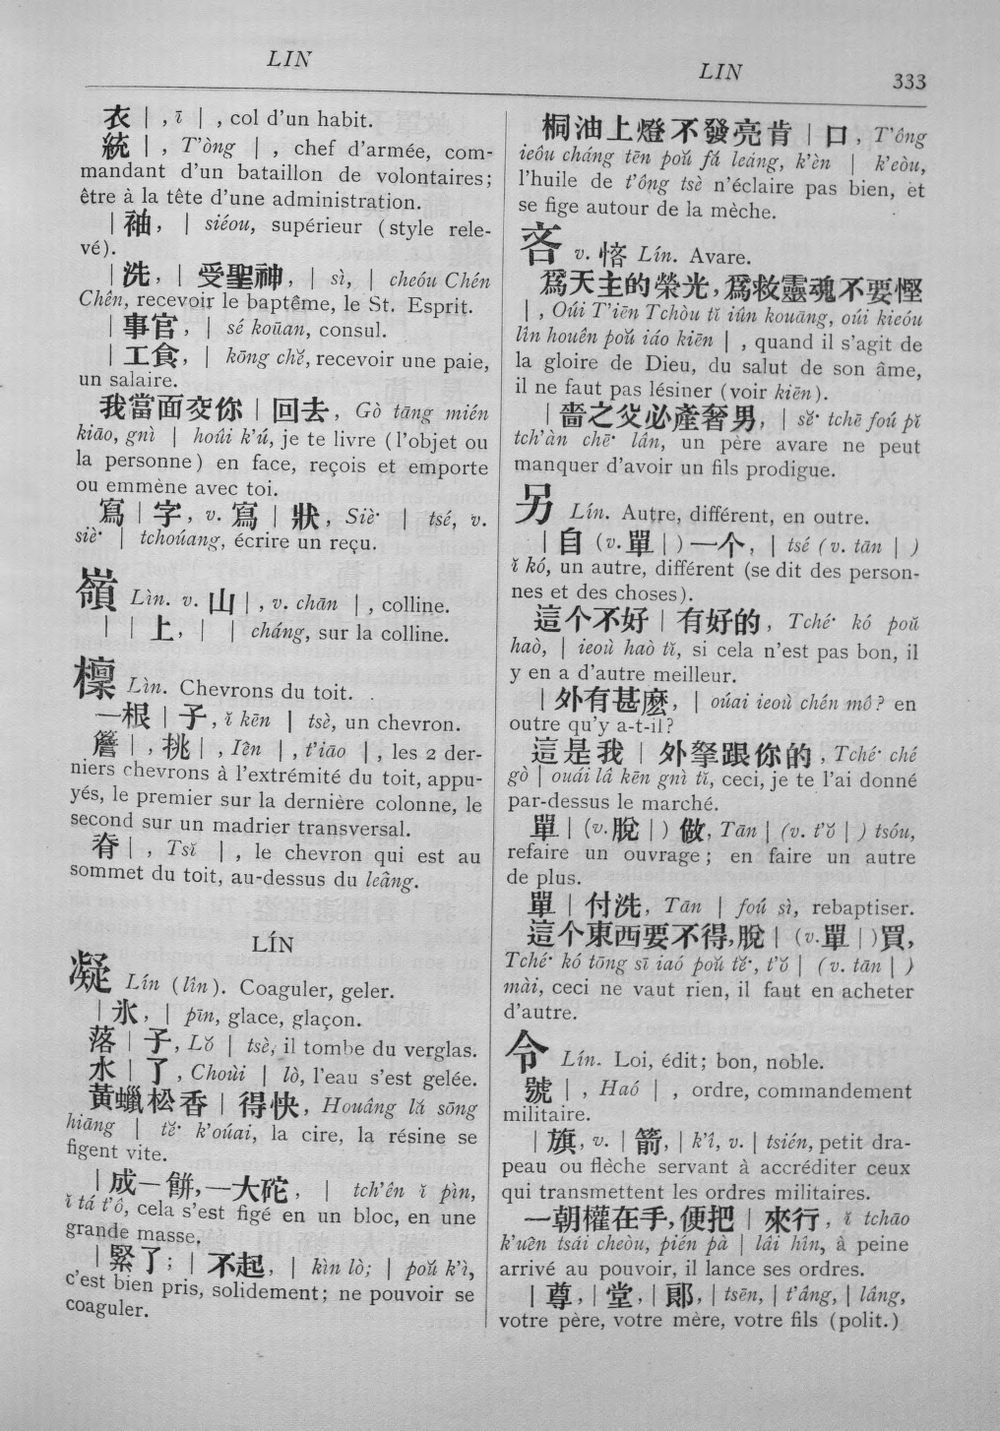 LIN
LIN
333
衣 | , ī | , col d'un habit.
統 | , T'òng | , chef d'armée, com-
mandant d'un bataillon de volontaires;
être à la tête d'une administration.
| 袖, | siéou, supérieur (style rele-
vé).
| 洗, | 受聖神, | sì, | cheóu Chén
Chên, recevoir le baptême, le St. Esprit.
| 事官, | sé koūan, consul.
| 工食, | kōng chě, recevoir une paie,
un salaire.
我當面交你 | 回去, Gò tāng mién
kiāo, gnì | hoûi k'ú, je te livre (l'objet ou
la personne) en face, reçois et emporte
ou emmène avec toi.
寫 | 字, v. 寫 | 狀, Siè· | tsé, v.
siè· | tchoúang, écrire un reçu.
嶺 Lìn. v. 山 | , v. chān | , colline.
| | 上, | | cháng, sur la colline.
檁 Lìn. Chevrons du toit.
一根 | 子, ǐ kēn | tsè, un chevron.
簷 | , 挑 | , Iên | , t'iāo | , les 2 der-
niers chevrons à l'extrémité du toit, appu-
yés, le premier sur la dernière colonne, le
second sur un madrier transversal.
脊 | , Tsǐ | , le chevron qui est au
sommet du toit, au-dessus du leâng.
LÍN
凝 Lín (lîn). Coaguler, geler.
| 氷, | pīn, glace, glaçon.
落 | 子, Lǒ | tsè, il tombe du verglas.
水 | 了, Choùi | lò, l'eau s'est gelée.
黃蠟松香 | 得快, Houâng lǎ sōng
hiāng | tě· k'oúai, la cire, la résine se
figent vite.
| 成一餅,一大砣, | tch'ên ǐ pìn,
ǐ tá t'ô, cela s'est figé en un bloc, en une
grande masse.
| 緊了; | 不起, | kìn lò; | poǔ k'ì,
c'est bien pris, solidement; ne pouvoir se
coaguler.
桐油上燈不發亮肯 | 口, T'ông
ieôu cháng tēn poǔ fǎ leáng, k'èn | k'eòu,
l'huile de t'ông tsè n'éclaire pas bien, et
se fige autour de la mèche.
吝 v. 悋 Lín. Avare.
爲天主的榮光,爲救靈魂不要慳
| , Oúi T'iēn Tchòu tǐ iûn kouāng, oúi kieóu
lîn houên poǔ iáo kiēn | , quand il s'agit de
la gloire de Dieu, du salut de son âme,
il ne faut pas lésiner (voir kiēn).
| 嗇之父必產奢男, | sě· tchē foú pǐ
tch'àn chē· lân, un père avare ne peut
manquer d'avoir un fils prodigue.
另 Lín. Autre, différent, en outre.
| 自 (v. 單 | ) 一个, | tsé (v. tān | )
ǐ kó, un autre, différent (se dit des person-
nes et des choses).
這个不好 | 有好的, Tché· kó poǔ
haò, | ieoù haò tǐ, si cela n'est pas bon, il
y en a d'autre meilleur.
| 外有甚麽, | oúai ieoù chén mô? en
outre qu'y a-t-il?
這是我 | 外拏跟你的, Tché· ché
gò | ouái lâ kēn gnì tǐ, ceci, je te l'ai donné
par-dessus le marché.
單 | (v. 脫 | ) 做, Tān | (v. t'ǒ | ) tsóu,
refaire un ouvrage; en faire un autre
de plus.
單 | 付洗, Tān | foú sì, rebaptiser.
這个東西要不得,脫 | (v. 單 | ) 買,
Tché· kó tōng sī iaó poǔ tě·, t'ǒ | (v. tān | )
mài, ceci ne vaut rien, il faut en acheter
d'autre.
令 Lín. Loi, édit; bon, noble.
號 | , Haó | , ordre, commandement
militaire.
| 旗, v. | 箭, | k'î, v. | tsién, petit dra-
peau ou flèche servant à accréditer ceux
qui transmettent les ordres militaires.
一朝權在手,便把 | 來行, ǐ tchāo
k'uên tsái cheòu, pién pà | lâi hîn, à peine
arrivé au pouvoir, il lance ses ordres.
| 尊, | 堂, | 郎, | tsēn, | t'âng, | lâng,
votre père, votre mère, votre fils (polit.)